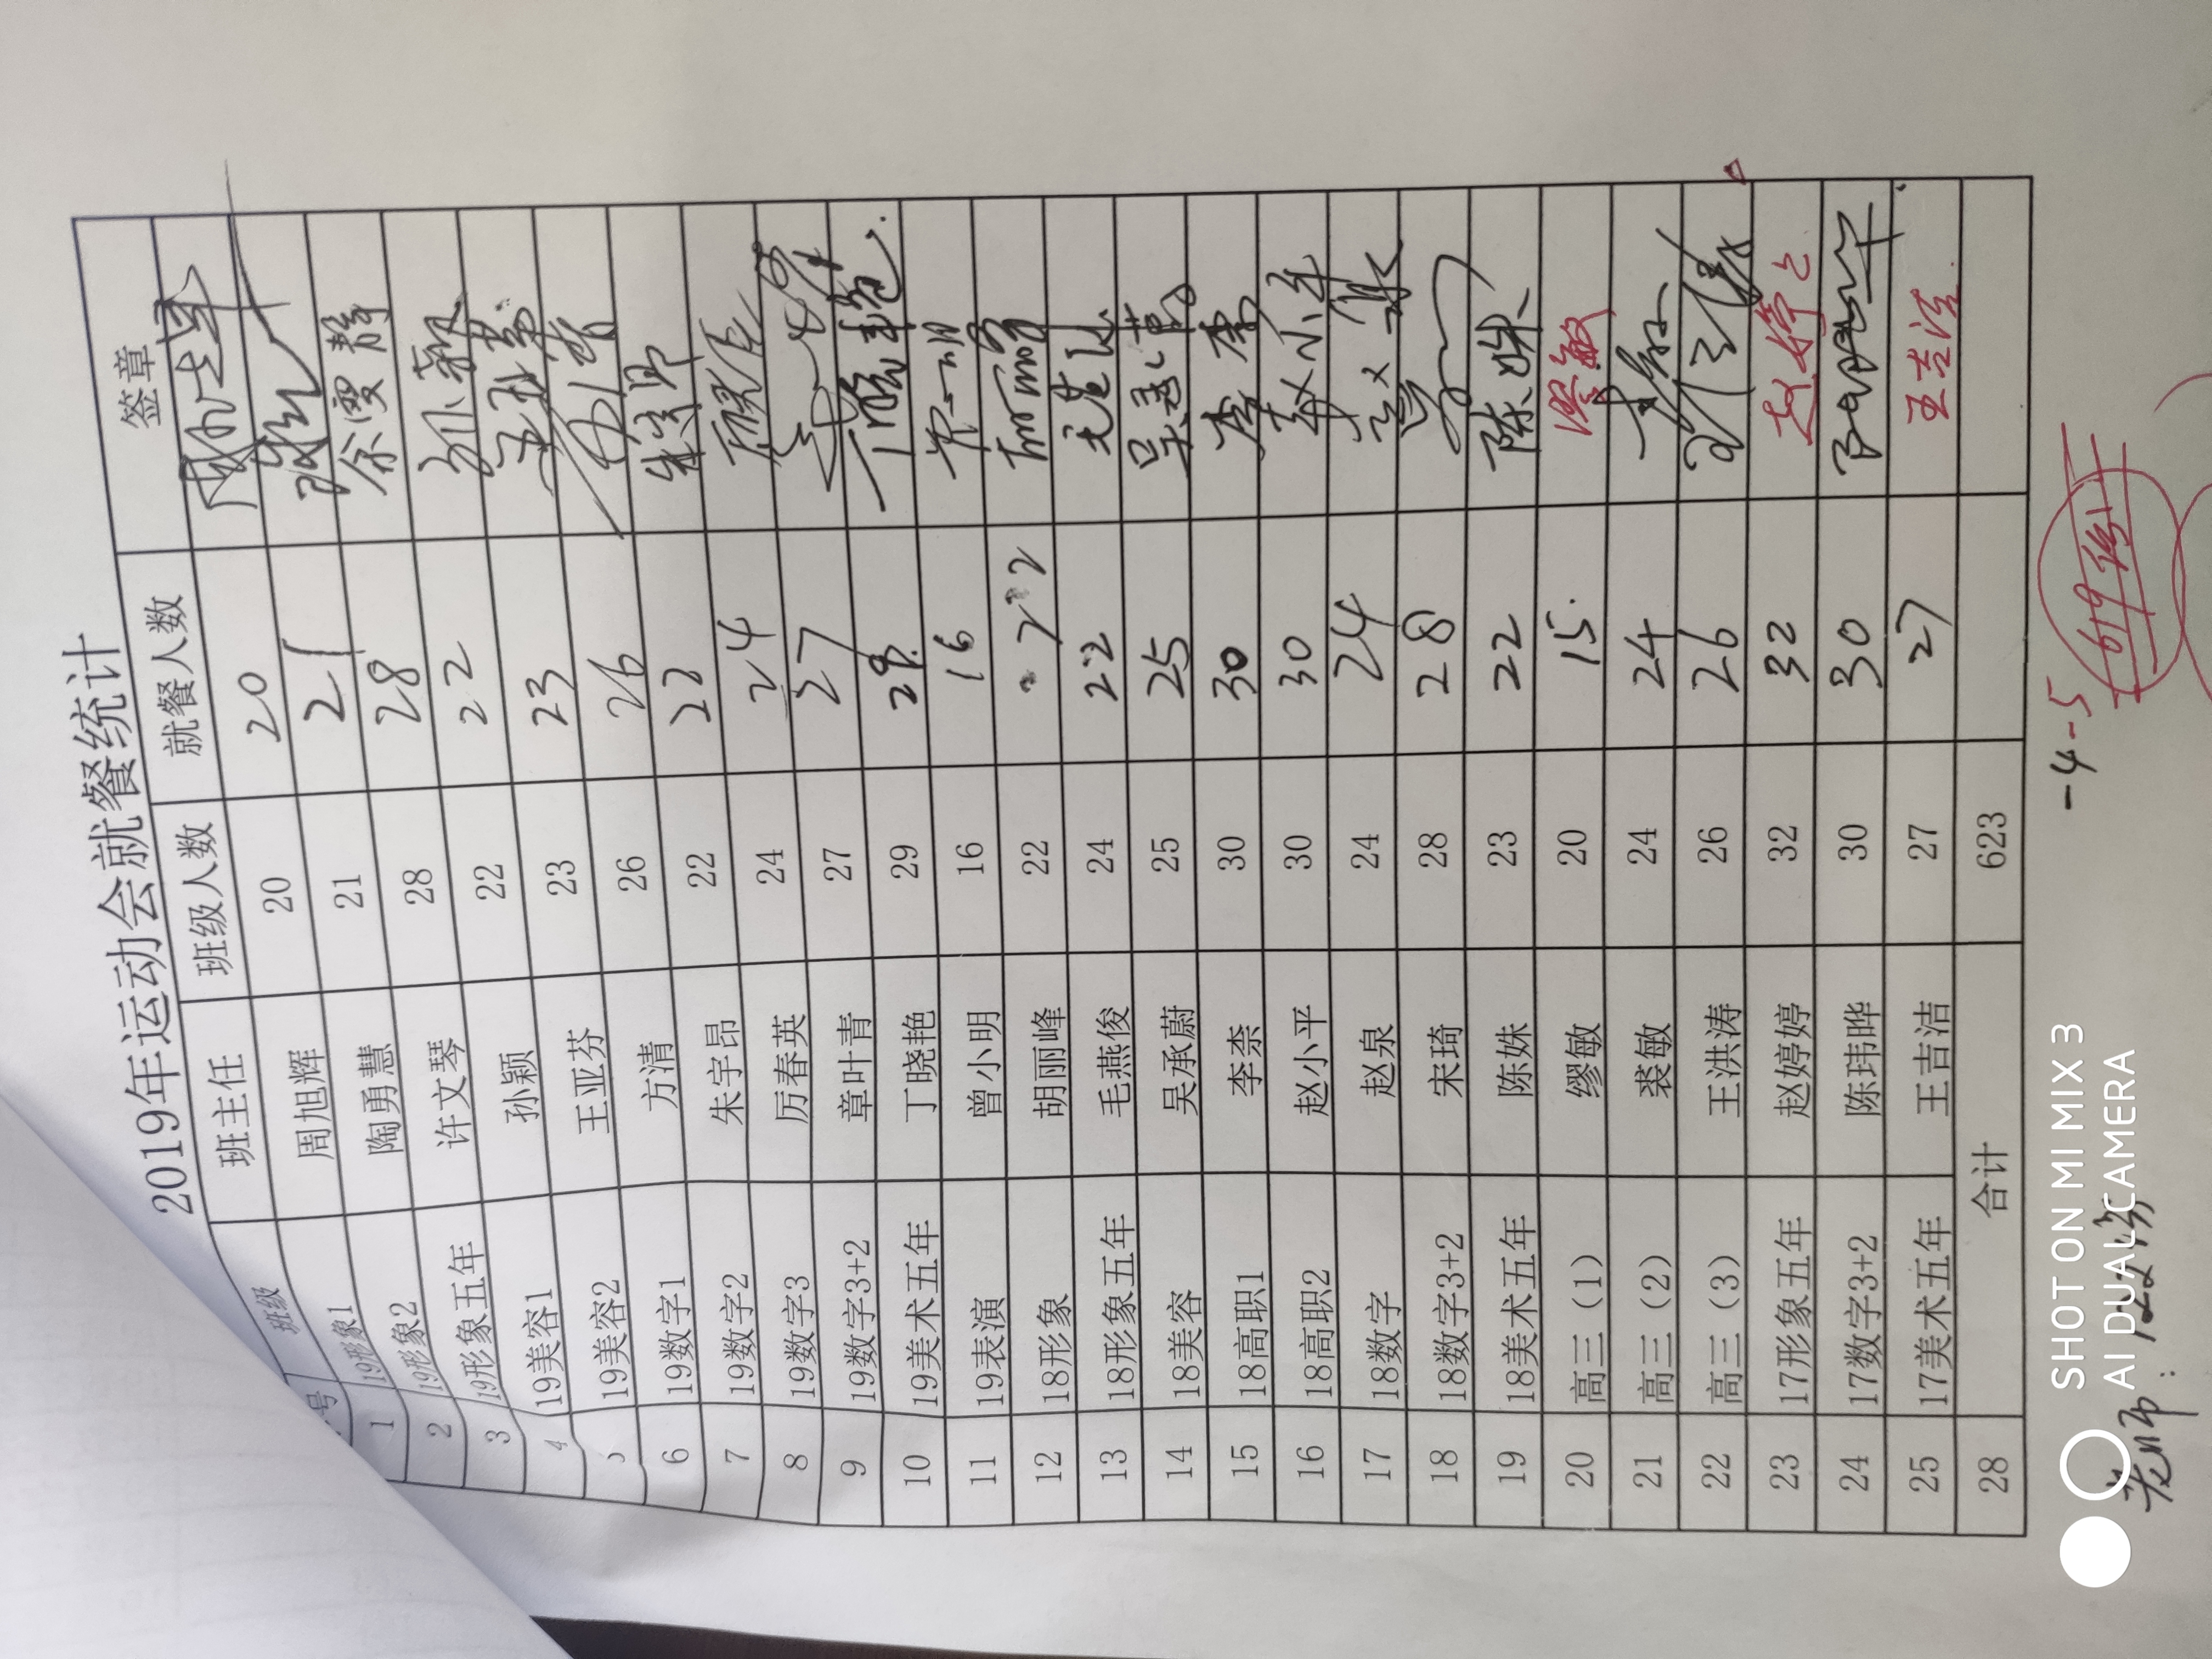 2019年运动会就餐统计
号 班级 班主任 班级人数 就餐人数 签章
1 19形象1 周旭辉 20 20
2 19形象2 陶勇慧 21 21
3 19形象五年 许文琴 28 28
4 19美容1 孙颖 22 22 孙颖
19美容2 王亚芬 23 23 王亚芬
6 19数字1 方清 26 26 方清
7 19数字2 朱宇昂 22 22 朱宇昂
8 19数字3 厉春英 24 24
9 19数字3+2 章叶青 27 27
10 19美术五年 丁晓艳 29 29. 丁晓艳.
11 19表演 曾小明 16 16
12 18形象 胡丽峰 22 22
13 18形象五年 毛燕俊 24 22
14 18美容 吴承蔚 25 25 吴承蔚
15 18高职1 李柰 30 30 李柰
16 18高职2 赵小平 30 30 赵小平
17 18数字 赵泉 24 24 赵泉
18 18数字3+2 宋琦 28 28
19 18美术五年 陈姝 23 22 陈姝
20 高三（1） 缪敏 20 15. 缪敏
21 高三（2） 裘敏 24 24
22 高三（3） 王洪涛 26 26 王洪涛
23 17形象五年 赵婷婷 32 32 赵婷
24 17数字3+2 陈玮晔 30 30
25 17美术五年 王吉洁 27 27 王吉洁
28 合计 623
-4-5
619份
老师：122份
SHOT ON MI MIX 3
AI DUAL CAMERA